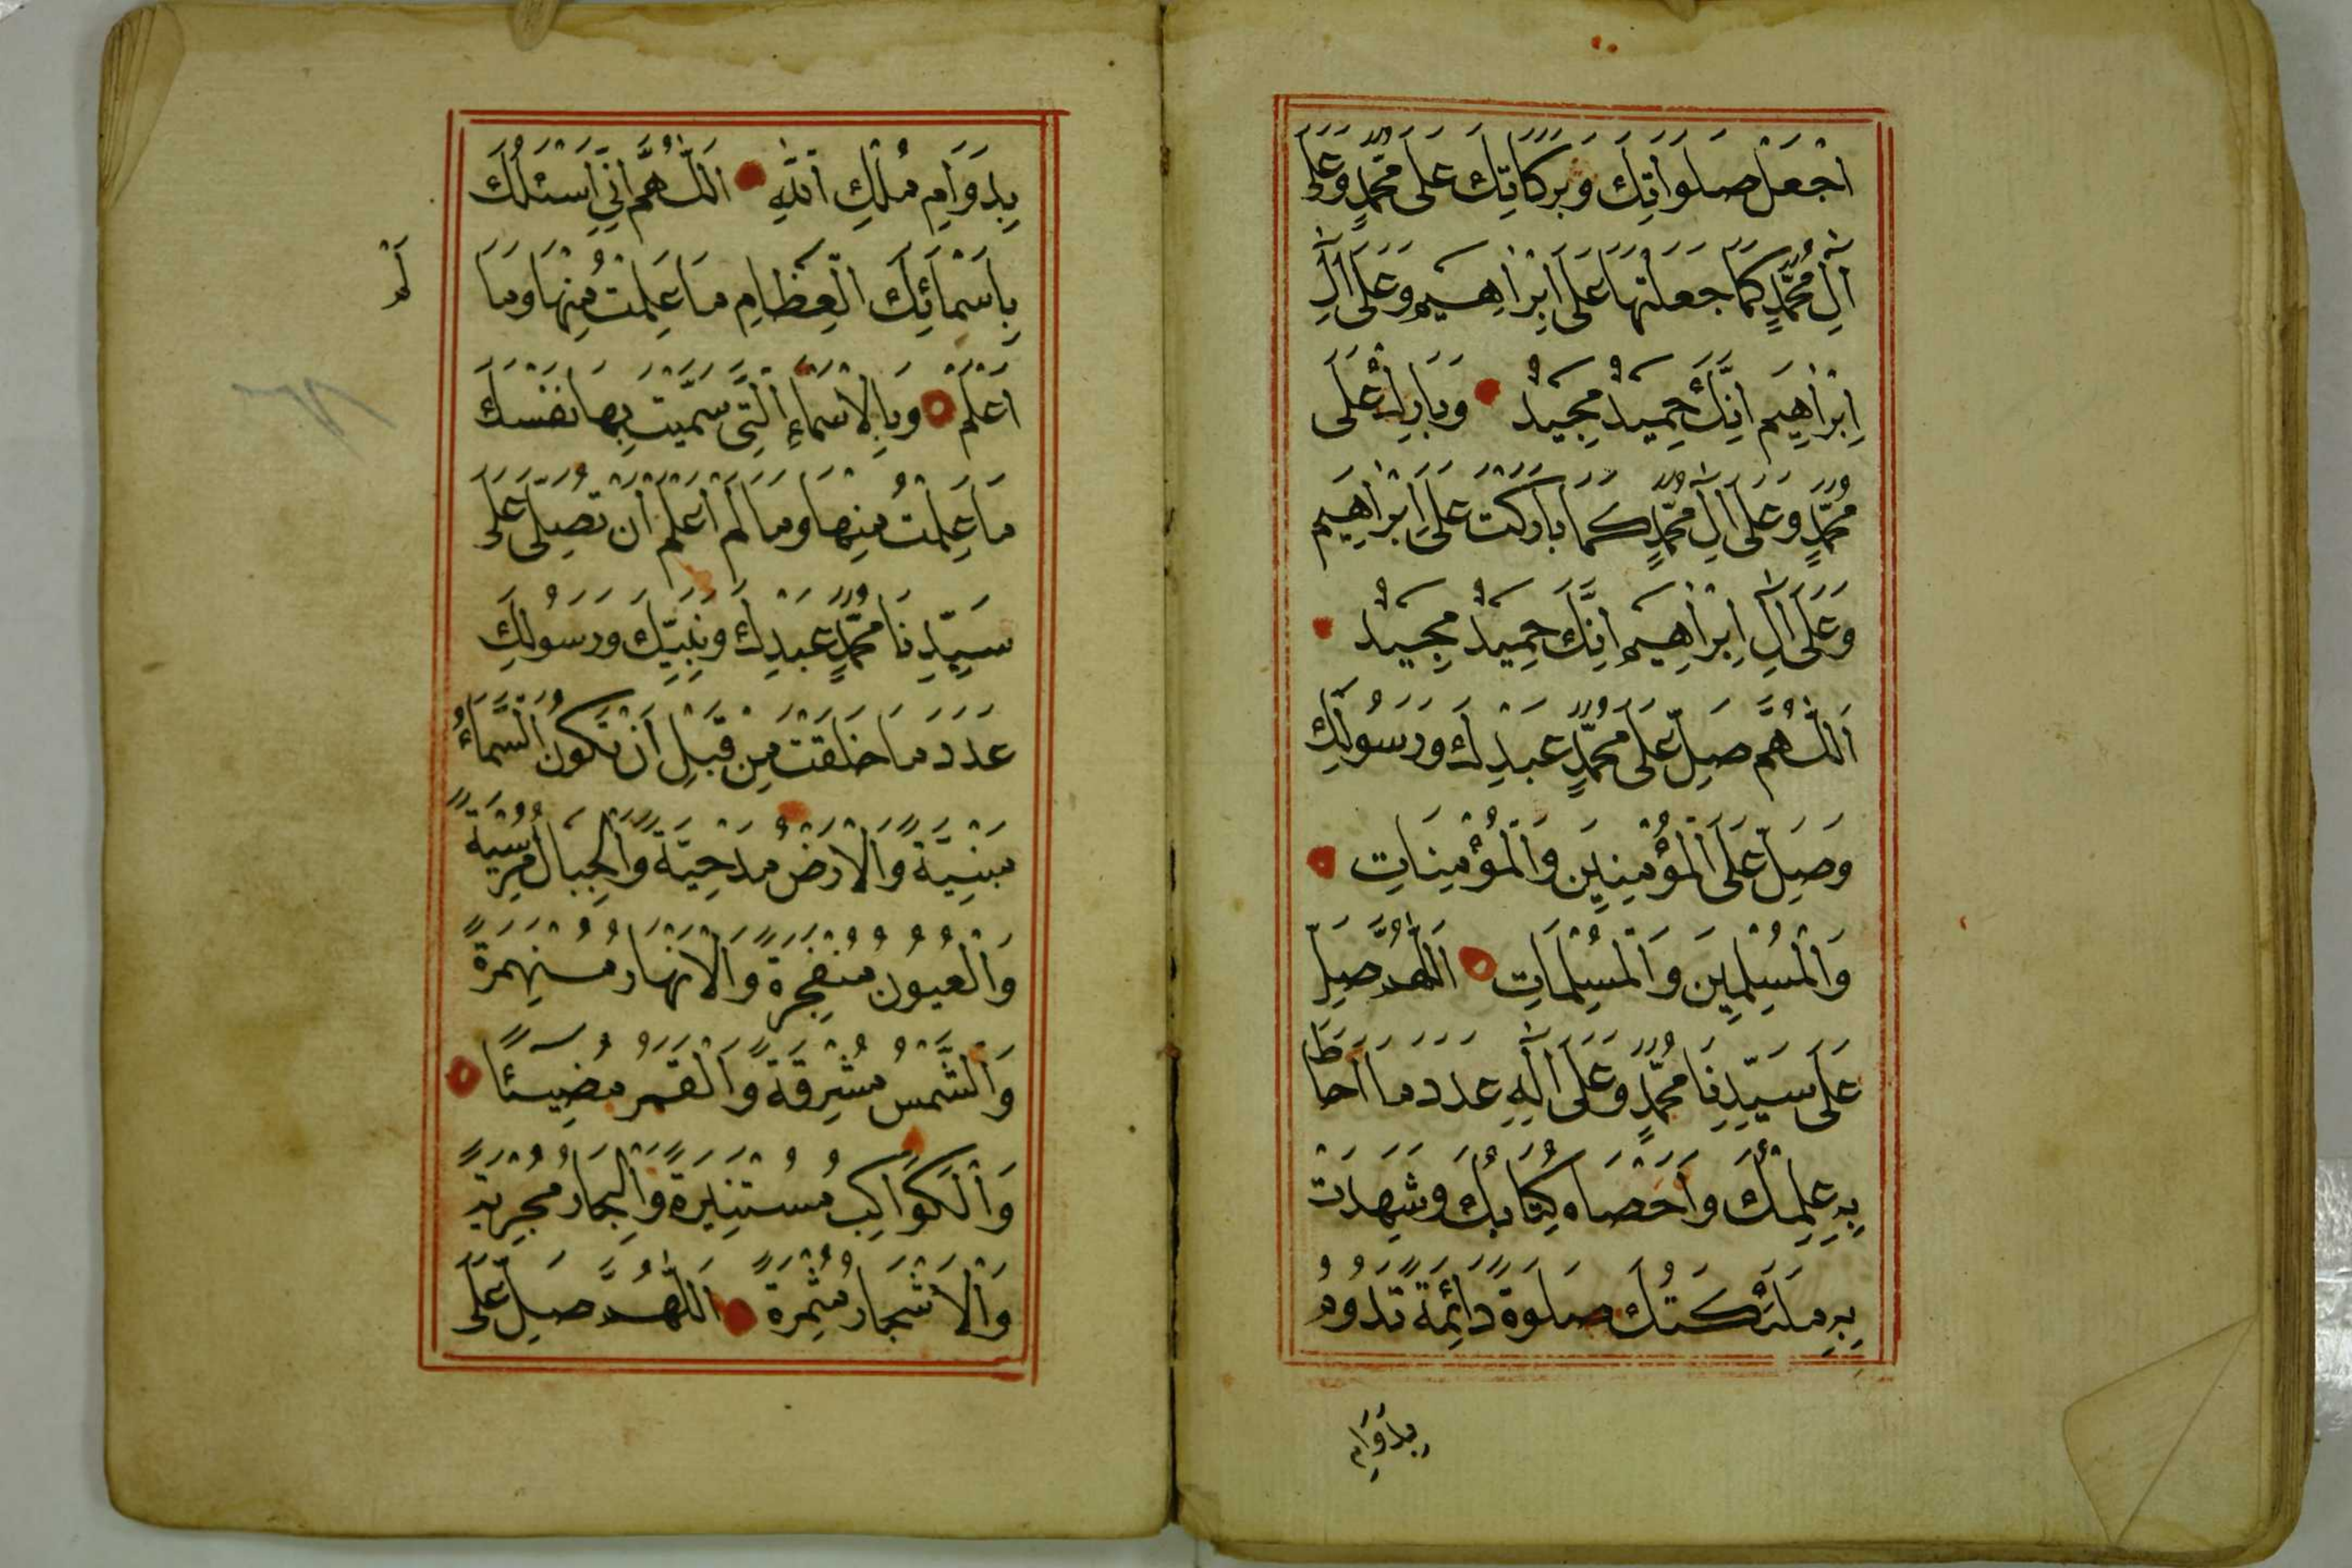 اجْعَلْ صَلَوَاتِكَ وَبَرَكَاتِكَ عَلَى مُحَمَّدٍ وَعَلَى
اٰلِ مُحَمَّدٍ كَمَا جَعَلْتَهَا عَلَى اِبْرَاهِيمَ وَعَلَى اٰلِ
اِبْرَاهِيمَ اِنَّكَ حَمِيدٌ مَجِيدٌ وَبَارِكْ عَلَى
مُحَمَّدٍ وَعَلَى اٰلِ مُحَمَّدٍ كَمَا بَارَكْتَ عَلَى اِبْرَاهِيمَ
وَعَلَى اٰلِ اِبْرَاهِيمَ اِنَّكَ حَمِيدٌ مَجِيدٌ
اَللّٰهُمَّ صَلِّ عَلَى مُحَمَّدٍ عَبْدِكَ وَرَسُولِكَ
وَصَلِّ عَلَى الْمُؤْمِنِينَ وَالْمُؤْمِنَاتِ
وَالْمُسْلِمِينَ وَالْمُسْلِمَاتِ اَللّٰهُمَّ صَلِّ
عَلَى سَيِّدِنَا مُحَمَّدٍ وَعَلَى اٰلِهِ عَدَدَ مَا اَحَاطَ
بِهِ عِلْمُكَ وَاَحْصَاهُ كِتَابُكَ وَشَهِدَتْ
بِهِ مَلَئِكَتُكَ صَلَوةً دَائِمَةً تَدُومُ
بِدَوَامِ
بِدَوَامِ مُلْكِ اللّٰهِ اَللّٰهُمَّ اِنِّي اَسْئَلُكَ
بِاَسْمَائِكَ الْعِظَامِ مَا عَلِمْتُ مِنْهَا وَمَا
لَمْ
اَعْلَمْ وَبِالْاَسْمَاءِ الَّتِي سَمَّيْتَ بِهَا نَفْسَكَ
مَا عَلِمْتُ مِنْهَا وَمَا لَمْ اَعْلَمْ اَنْ تُصَلِّيَ عَلَى
سَيِّدِنَا مُحَمَّدٍ عَبْدِكَ وَنَبِيِّكَ وَرَسُولِكَ
عَدَدَ مَا خَلَقْتَ مِنْ قَبْلِ اَنْ تَكُونَ السَّمَاءُ
مَبْنِيَّةً وَالْاَرْضُ مَدْحِيَّةً وَالْجِبَالُ مُرْسِيَةً
وَالْعُيُونُ مُنْفَجِرَةً وَالْاَنْهَارُ مُنْهَمِرَةً
وَالشَّمْسُ مُشْرِقَةً وَالْقَمَرُ مُضِيئًا
وَالْكَوَاكِبُ مُسْتَنِيرَةً وَالْبِحَارُ مُجْرِيَةً
وَالْاَشْجَارُ مُثْمِرَةً اَللّٰهُمَّ صَلِّ عَلَى